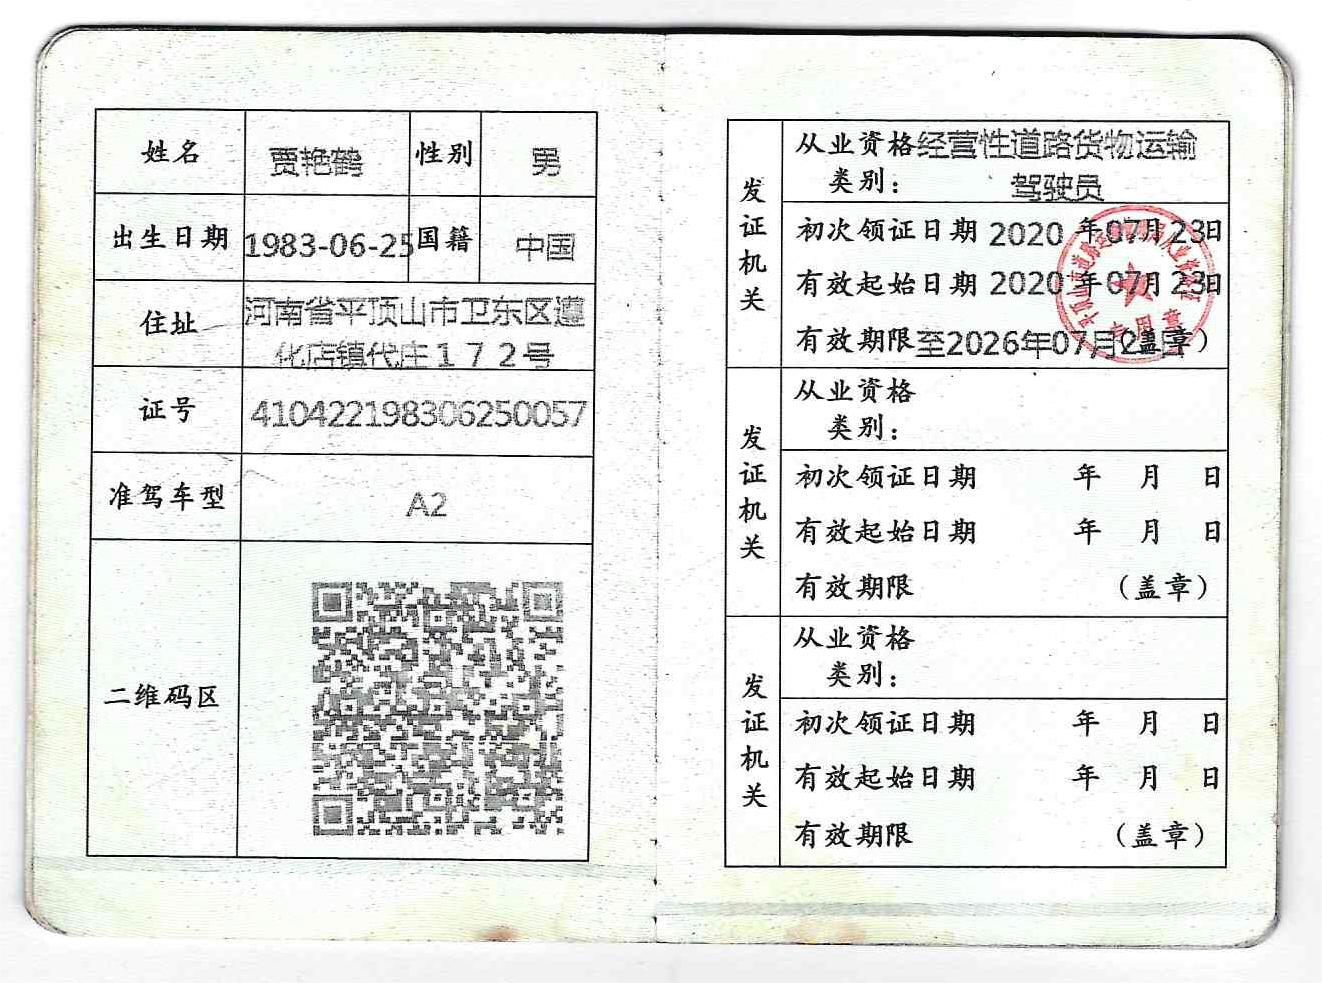 姓名 贾艳鹤 性别 男
出生日期 1983-06-25 国籍 中国
住址 河南省平顶山市卫东区遵
化店镇代庄１７２号
证号 410422198306250057
准驾车型 A2
二维码区
发证机关
从业资格 经营性道路货物运输
类别： 驾驶员
初次领证日期 2020 年 07月 23日
有效起始日期 2020 年 07月 23日
有效期限 至2026年07月 （盖章）
专用章
发证机关
从业资格
类别：
初次领证日期 年 月 日
有效起始日期 年 月 日
有效期限 （盖章）
发证机关
从业资格
类别：
初次领证日期 年 月 日
有效起始日期 年 月 日
有效期限 （盖章）